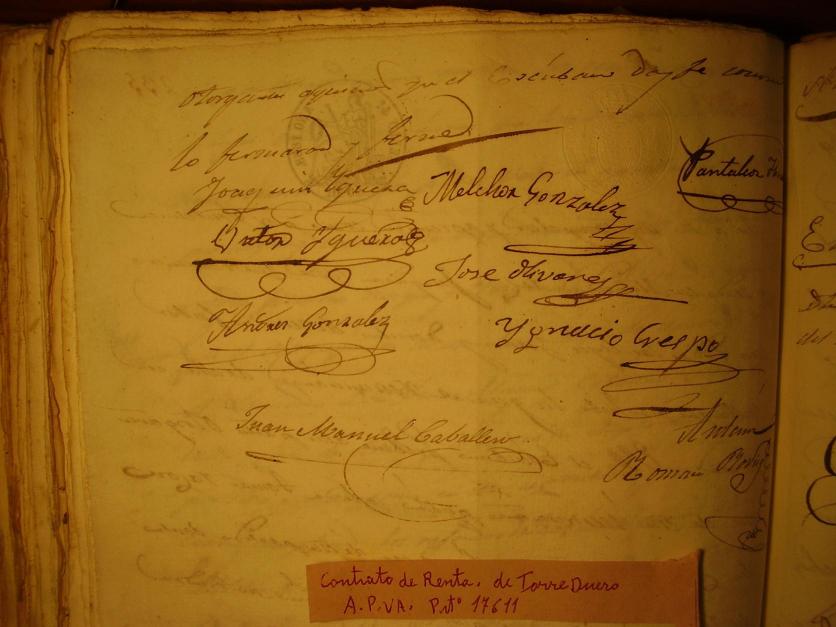 otorgantes a quienes yo el Escribano doy fe conozco
lo firmaron y firmé
Joaquin Yguera
Melchor Gonzalez
Pantaleon
Anton Yguera
Jose Olivares
Andres Gonzalez
Ygnacio Crespo
Juan Manuel Caballero
Antemi
Roman Rodrig
Contrato de Renta. de Torre Duero
A.P.VA. Prtº 17611